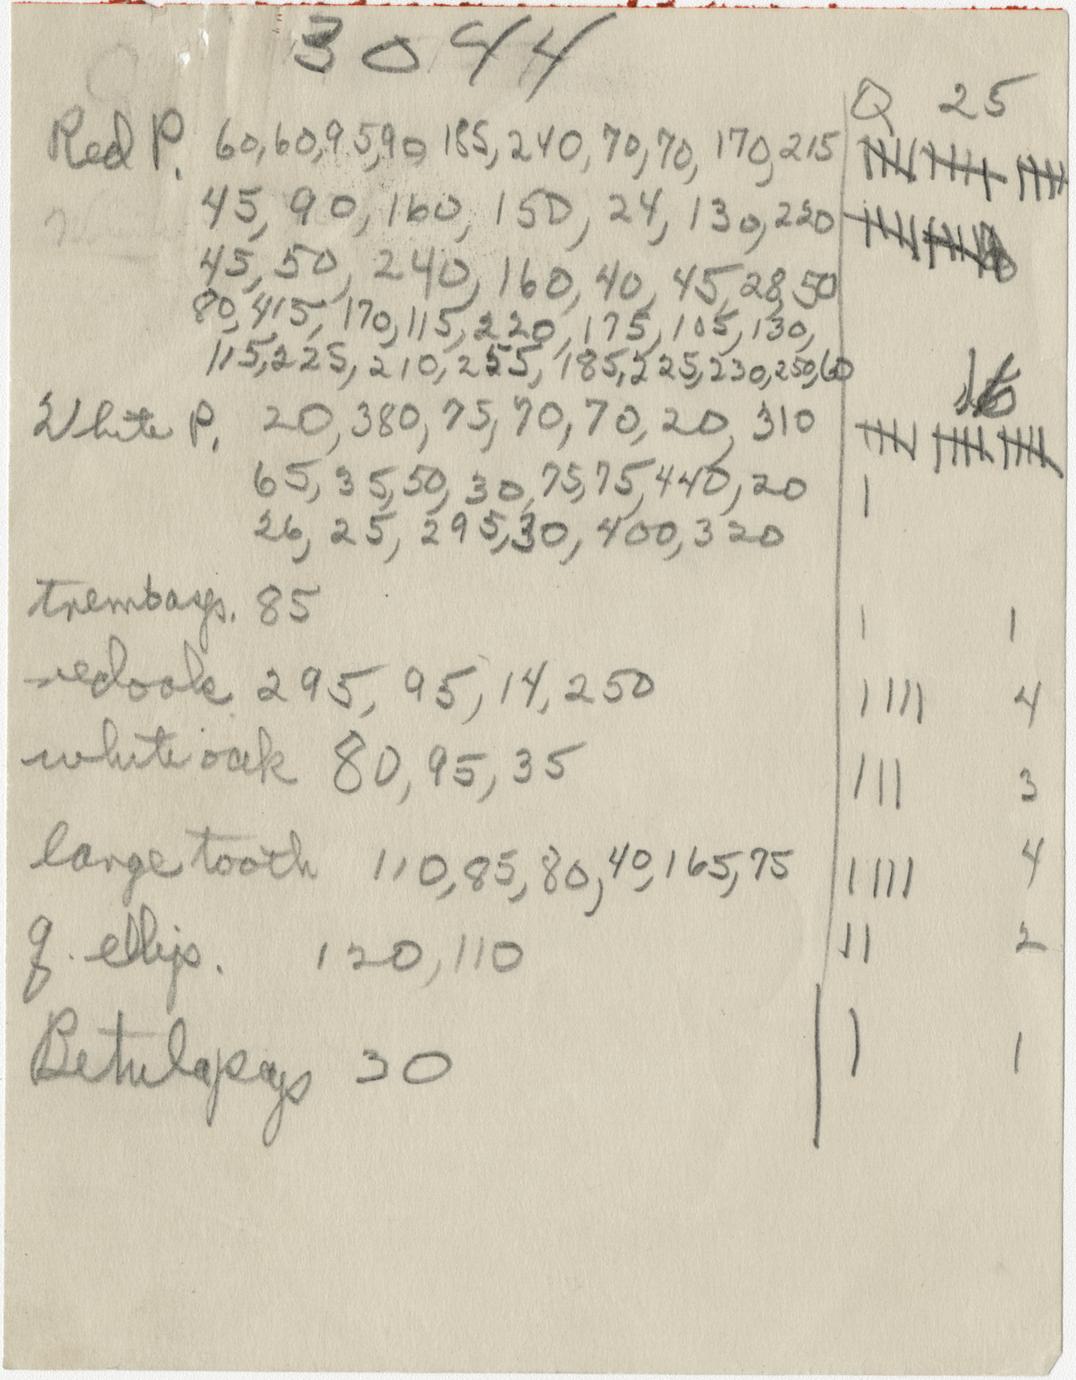 3044
Q 25
Red P. 60,60,95,90, 185,240,70,70, 170,215
45, 90, 160, 150, 24, 130, 220
45, 50, 240, 160, 40, 45, 28, 50
80, 415, 170, 115, 220, 175, 105, 130,
115, 225, 210, 255, 185, 225, 230, 250, 60
16
White P. 20, 380, 75, 70, 70, 20, 310
65, 35, 50, 30, 75, 75, 440, 20 |
26, 25, 295, 30, 400, 320
85 | 1
red oak 295, 95, 14, 250 |||| 4
white oak 80, 95, 35 ||| 3
large tooth 110, 85, 80, 40, 165, 75 |||| 4
q. ellips. 120, 110 || 2
Betulapays 30 | 1